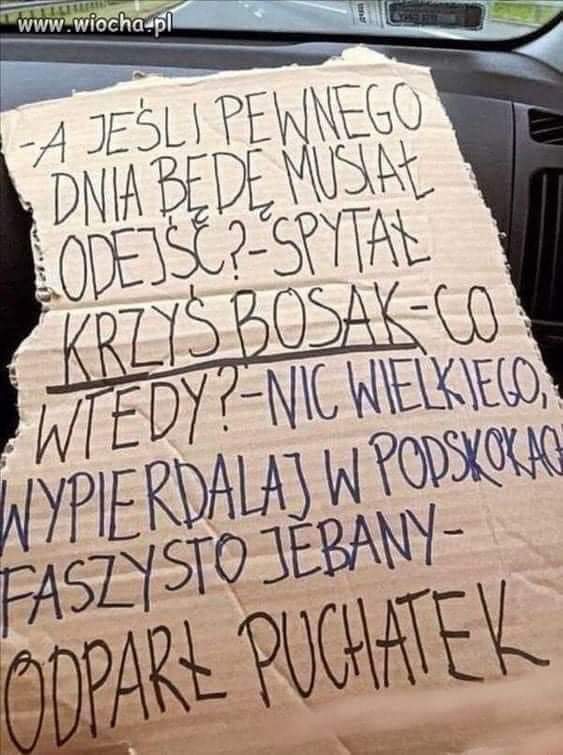 www.wiocha.pl
-A JEŚLI PEWNEGO
DNIA BĘDĘ MUSIAŁ
ODEJŚĆ?-SPYTAŁ
KRZYŚ BOSAK-CO
WTEDY?-NIC WIELKIEGO,
WYPIERDALAJ W PODSKOKACH
FASZYSTO JEBANY-
ODPARŁ PUCHATEK